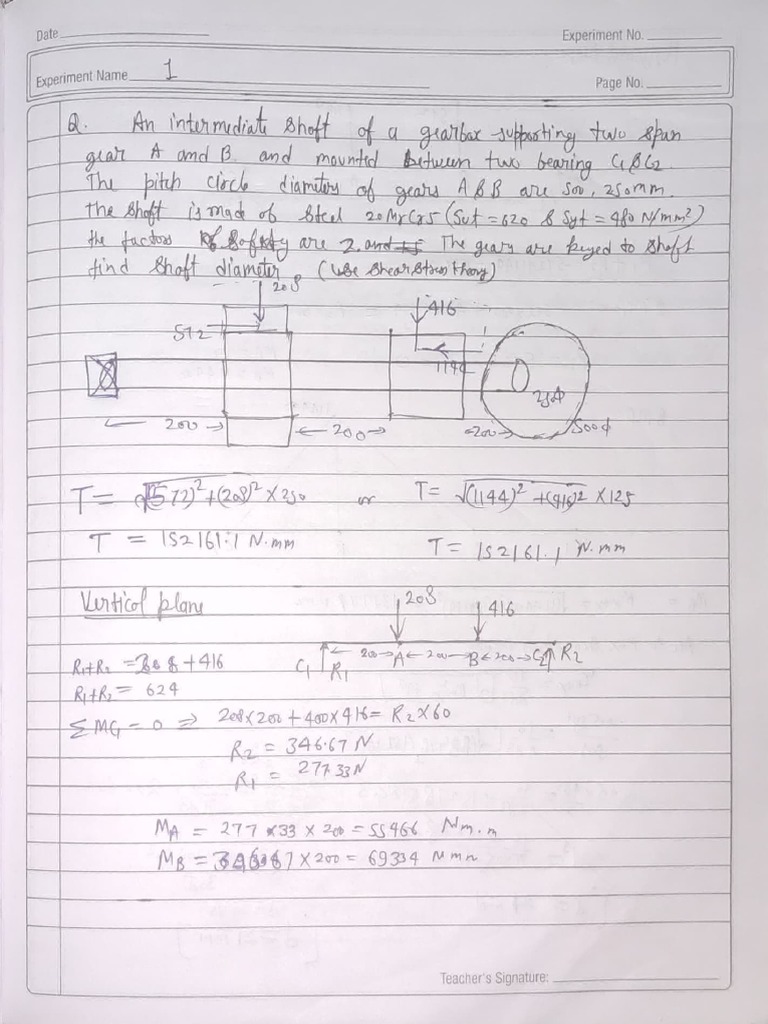 Date
Experiment No.
Experiment Name 1
Page No.
Q. An intermediate shaft of a gearbox supporting two spun
gear A and B and mounted between two bearing C1 & C2
The pitch circle diameters of gears A & B are 500, 250mm.
The shaft is made of steel 20MrCr5 (Sut = 620 & Syt = 480 N/mm²)
the factors of safety are 2. The gears are keyed to shaft
find shaft diameter. (Use shear strees theory)
208
416
572
1144
250ϕ
500ϕ
200
200
200
T = √(572)² + (208)² × 250 or T = √(1144)² + (416)² × 125
T = 152161.1 N.mm T = 152161.1 N.mm
Vertical plane
208 416
200 A 200 B 200 C2 R2
C1 R1
R1+R2 = 208 + 416
R1+R2 = 624
ΣMC1 = 0 ⇒ 208×200 + 400×416 = R2×60
R2 = 346.67 N
R1 = 277.33N
MA = 277 × 33 × 200 = 55466 Nm.m
MB = 346.67 × 200 = 69334 N mm
Teacher's Signature: